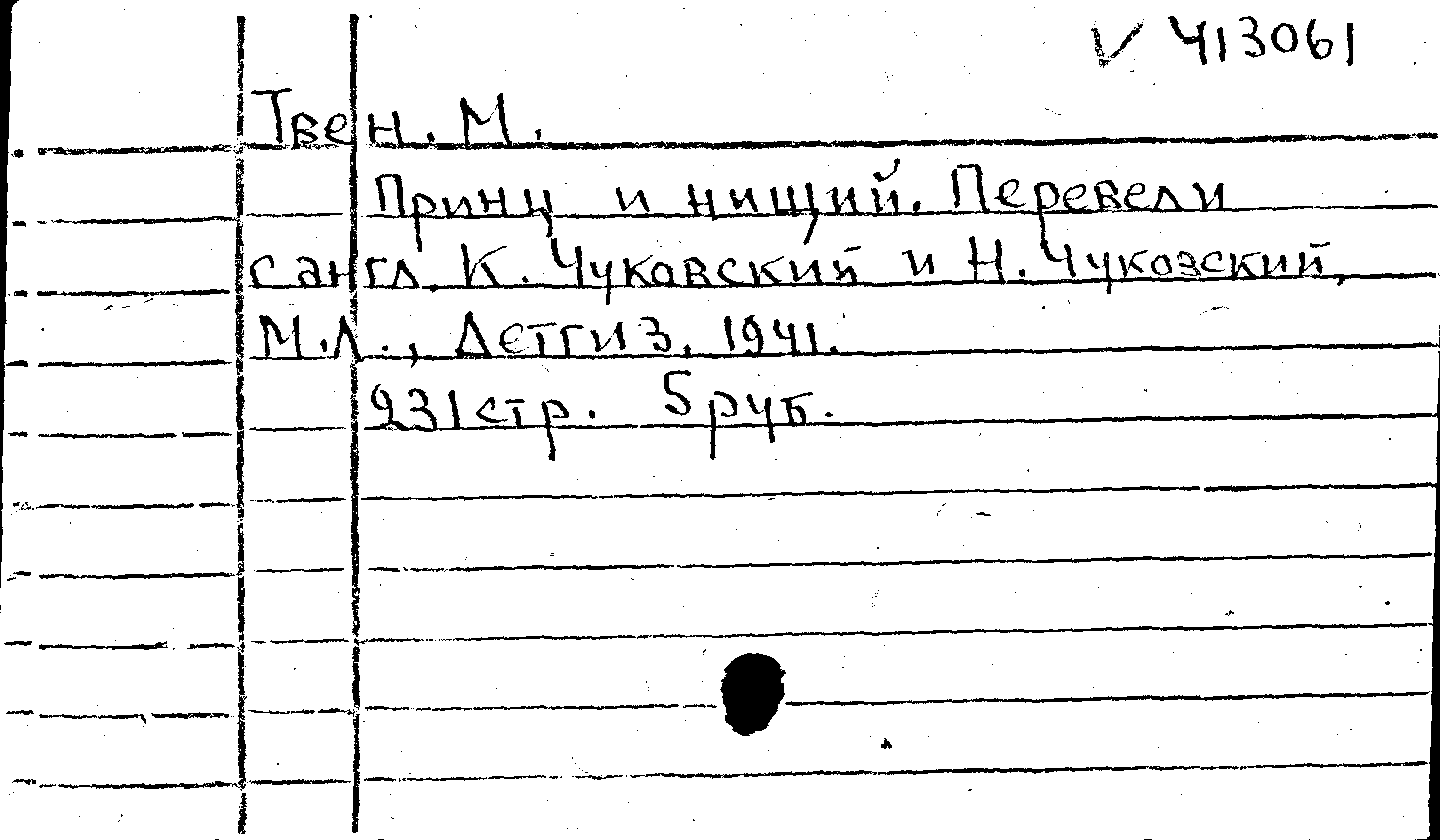 V 413061
Твен. М.
Принц и нищий. Перевели
с англ. К. Чуковский и Н. Чуковский,
М.Л., Детгиз, 1941.
231 стр. 5 руб.